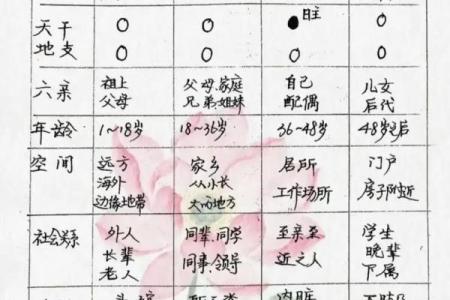 天干 ○ ○ ● 日主 ○
地支 ○ ○ ○ ○
六亲 祖上 父母.家庭 自己 儿女
父母 兄弟姐妹 配偶 后代
年龄 1~18岁 18~36岁 36~48岁 48岁后
空间 远方 家乡 居所 门户
海外 从小长 工作场所 房子附近
边缘地带 大的地方
社会关系 外人 同辈.同学 至亲至 学生
长辈 同事.领导 近之人 晚辈
老人 下属